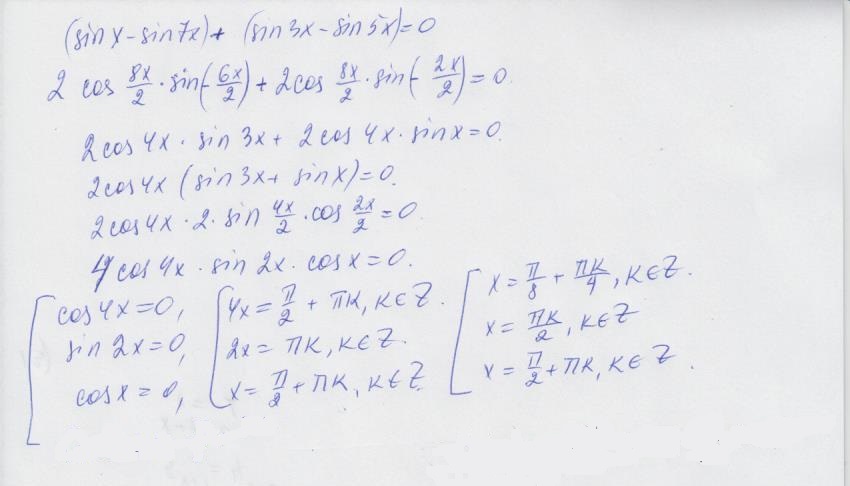 (sin x - sin 7x) + (sin 3x - sin 5x) = 0
2 cos 8x/2 · sin(-6x/2) + 2cos 8x/2 · sin(-2x/2) = 0.
2cos 4x · sin 3x + 2cos 4x · sin x = 0.
2cos 4x (sin 3x + sin x) = 0.
2cos 4x · 2 · sin 4x/2 · cos 2x/2 = 0.
4 cos 4x · sin 2x · cos x = 0.
[ cos 4x = 0,
sin 2x = 0,
cos x = 0,
[ 4x = π/2 + πk, k∈Z.
2x = πk, k∈Z.
x = π/2 + πk, k∈Z
[ x = π/8 + πk/4, k∈Z.
x = πk/2, k∈Z
x = π/2 + πk, k∈Z.